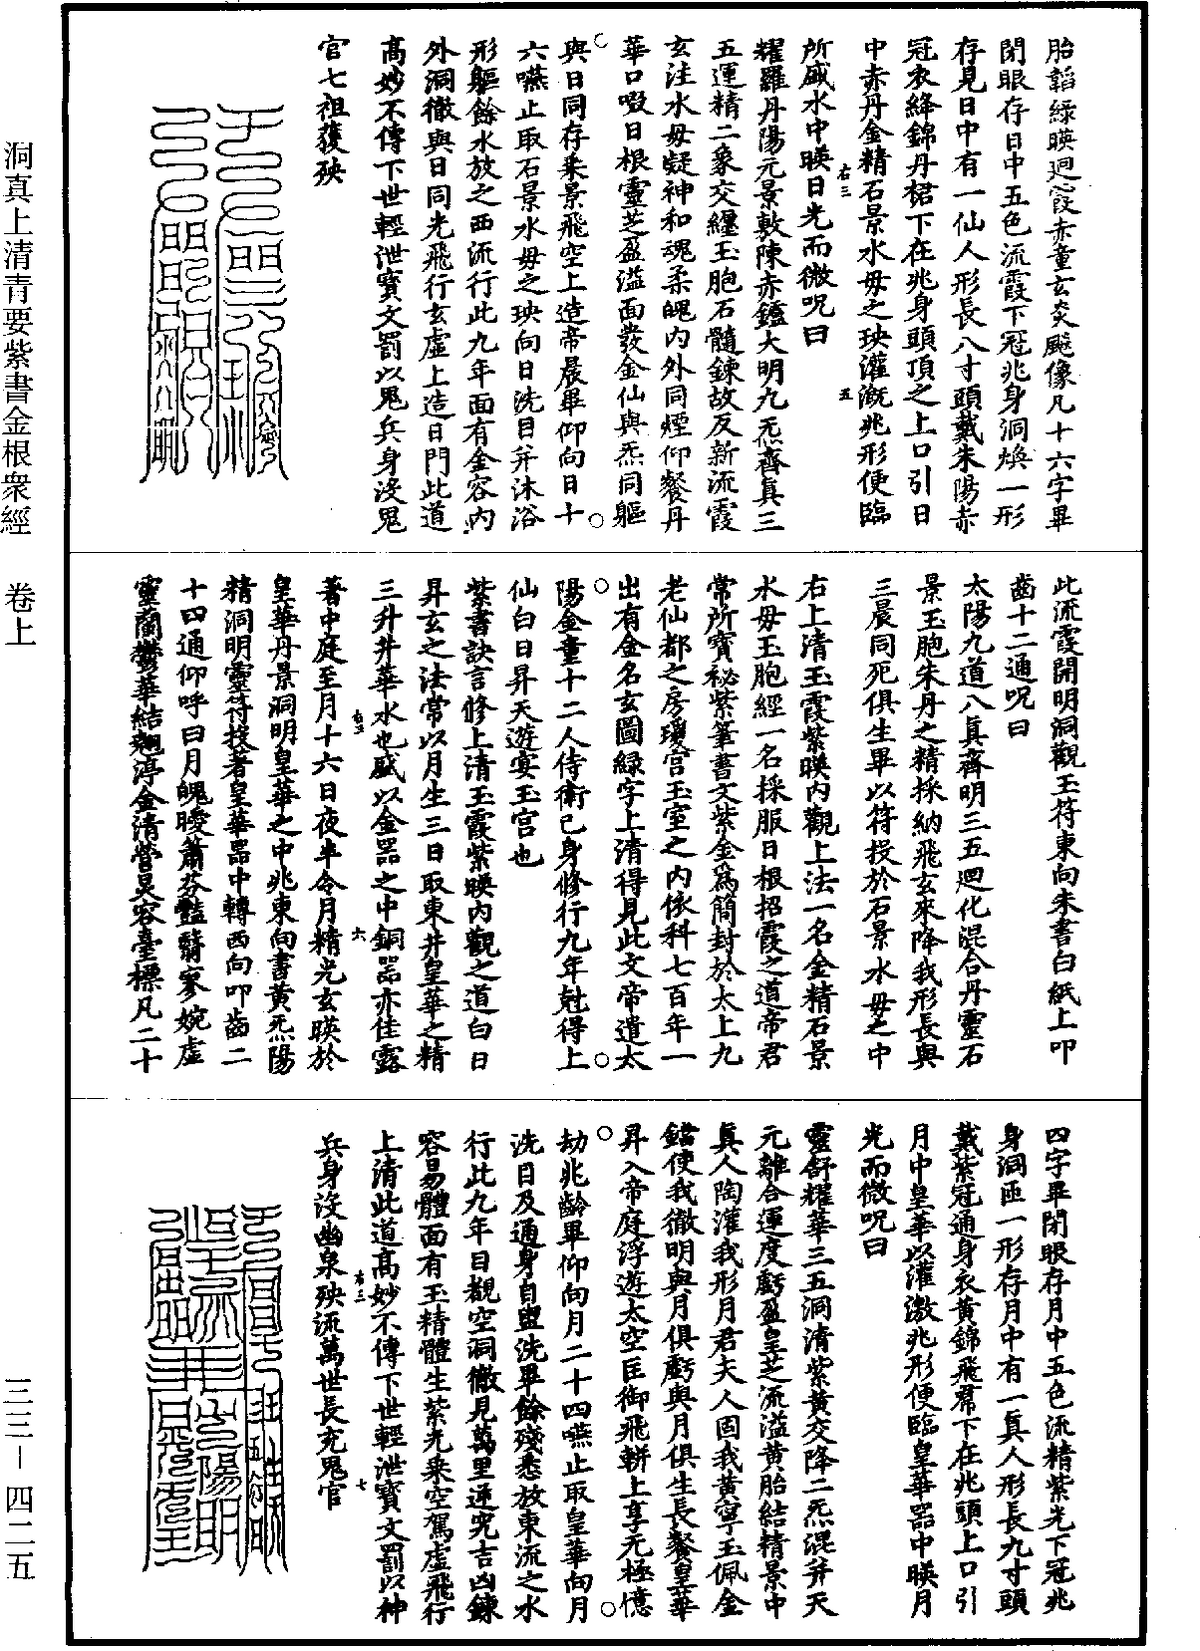 洞真上清青要紫書金根眾經 卷上 三三—四二五
胎韜綠暎迴霞赤童玄炎飈像凡十六字畢
閉眼存日中五色流霞下冠兆身洞煥一形
存見日中有一仙人形長八寸頭戴朱陽赤
冠衣絳錦丹裙下在兆身頭頂之上口引日
中赤丹金精石景水母之瑛灌溉兆形便臨
右三 五
所盛水中暎日光而微呪曰
耀羅丹陽元景敷陳赤鑪大明九炁齊真三
五運精二象交纏玉胞石髓鍊故反新流霞
玄注水母凝神和魂柔魄內外同煙仰餐丹
華口啜日根靈芝盈溢面發金仙與炁同軀
與日同存乘景飛空上造帝晨畢仰向日十
六嚥止取石景水母之瑛向日洗目并沐浴
形軀餘水放之西流行此九年面有金容內
外洞徹與日同光飛行玄虛上造日門此道
高妙不傳下世輕泄寶文罰以鬼兵身沒鬼
官七祖獲殃
此流霞開明洞觀玉符東向朱書白紙上叩
齒十二通呪曰
太陽九道八真齊明三五迴化混合丹靈石
景玉胞朱丹之精採納飛玄來降我形長與
三晨同死俱生畢以符投於石景水母之中
右上清玉霞紫暎內觀上法一名金精石景
水母玉胞經一名採服日根招霞之道帝君
常所寶祕紫筆書文紫金為簡封於太上九
老仙都之房瓊宮玉室之內依科七百年一
出有金名玄圖綠字上清得見此文帝遣太
陽金童十二人侍衛己身修行九年尅得上
仙白日昇天遊宴玉宮也
紫書訣言修上清玉霞紫暎內觀之道白日
昇玄之法常以月生三日取東井皇華之精
三升井華水也盛以金器之中銅器亦佳露
右五 六
著中庭至月十六日夜半令月精光玄暎於
皇華丹景洞明皇華之中兆東向書黃炁陽
精洞明靈符投著皇華器中轉西向叩齒二
十四通仰呼曰月魄曖蕭芬豔翳寥婉虛
靈蘭鬱華結翹淳金清營炅容臺標凡二十
四字畢閉眼存月中五色流精紫光下冠兆
身洞匝一形存月中有一真人形長九寸頭
戴紫冠通身衣黃錦飛帬下在兆頭上口引
月中皇華以灌激兆形便臨皇華器中暎月
光而微呪曰
靈舒耀華三五洞清紫黃交降二炁混并天
元離合運度虧盈皇芝流溢黃胎結精景中
真人陶灌我形月君夫人固我黃寧玉佩金
鐺使我徹明與月俱虧與月俱生長餐皇華
昇入帝庭浮遊太空匡御飛軿上享元極億
劫兆齡畢仰向月二十四嚥止取皇華向月
洗目及通身自盥洗畢餘殘悉放東流之水
行此九年目覩空洞徹見萬里逆究吉凶鍊
容易體面有玉精體生紫光乘空駕虛飛行
上清此道高妙不傳下世輕泄寶文罰以神
右三 七
兵身沒幽泉殃流萬世長充鬼官